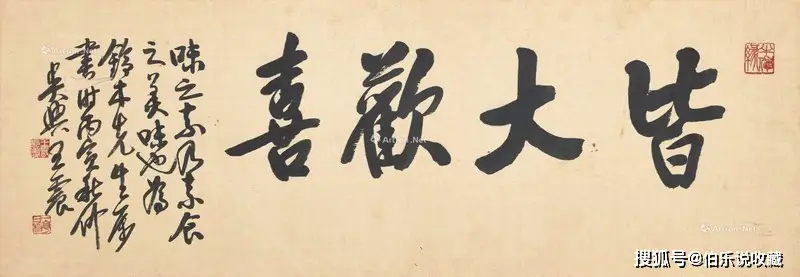 皆大歡喜
味之素乃素食
之美味也為
鈴木先生屬
書時丙寅秋仲
吳興王震
Artron.Net
Artron.Net
Artron.Net
搜狐号@伯乐说收藏